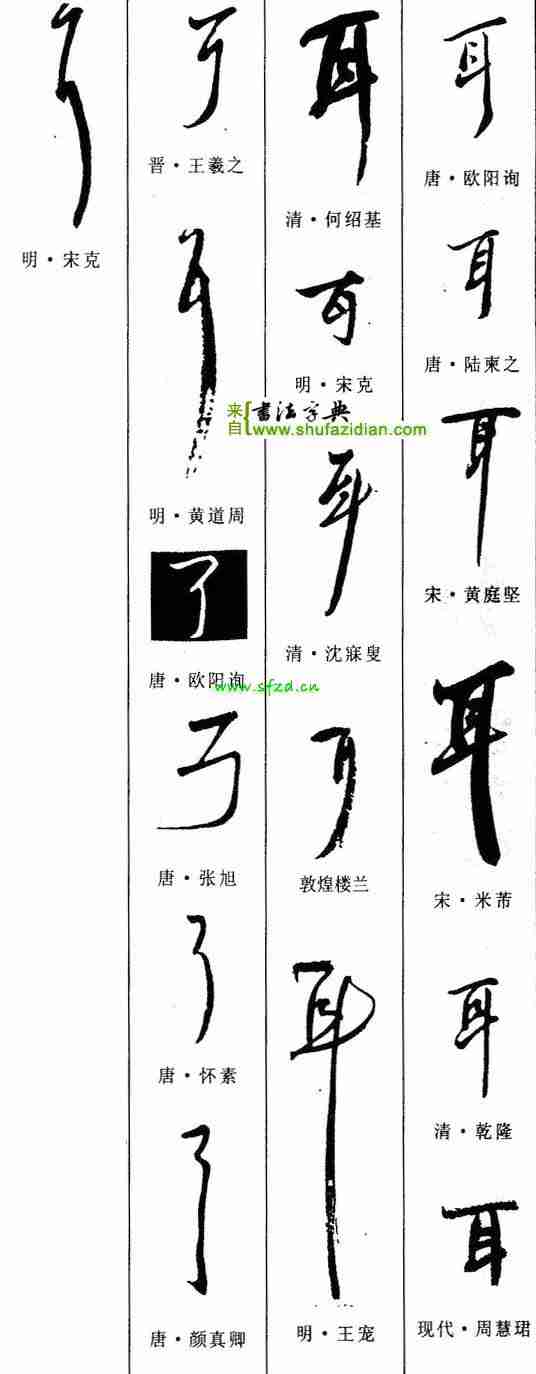 耳
唐·欧阳询
耳
唐·陆柬之
耳
宋·黄庭坚
耳
宋·米芾
耳
清·乾隆
耳
现代·周慧珺
耳
清·何绍基
耳
明·宋克
来自{書法字典
www.shufazidian.com
耳
清·沈寐叟
耳
敦煌楼兰
耳
明·王宠
耳
晋·王羲之
耳
明·黄道周
耳
唐·欧阳询
www.sfzd.cn
耳
唐·张旭
耳
唐·怀素
耳
唐·颜真卿
耳
明·宋克